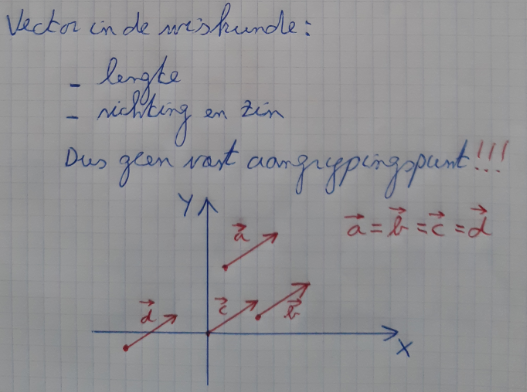 Vector in de wiskunde:
- lengte
- richting en zin
Dus geen vast aangrypingspunt!!!
Y
a⃗
a⃗ = b⃗ = c⃗ = d⃗
d⃗
c⃗
b⃗
X